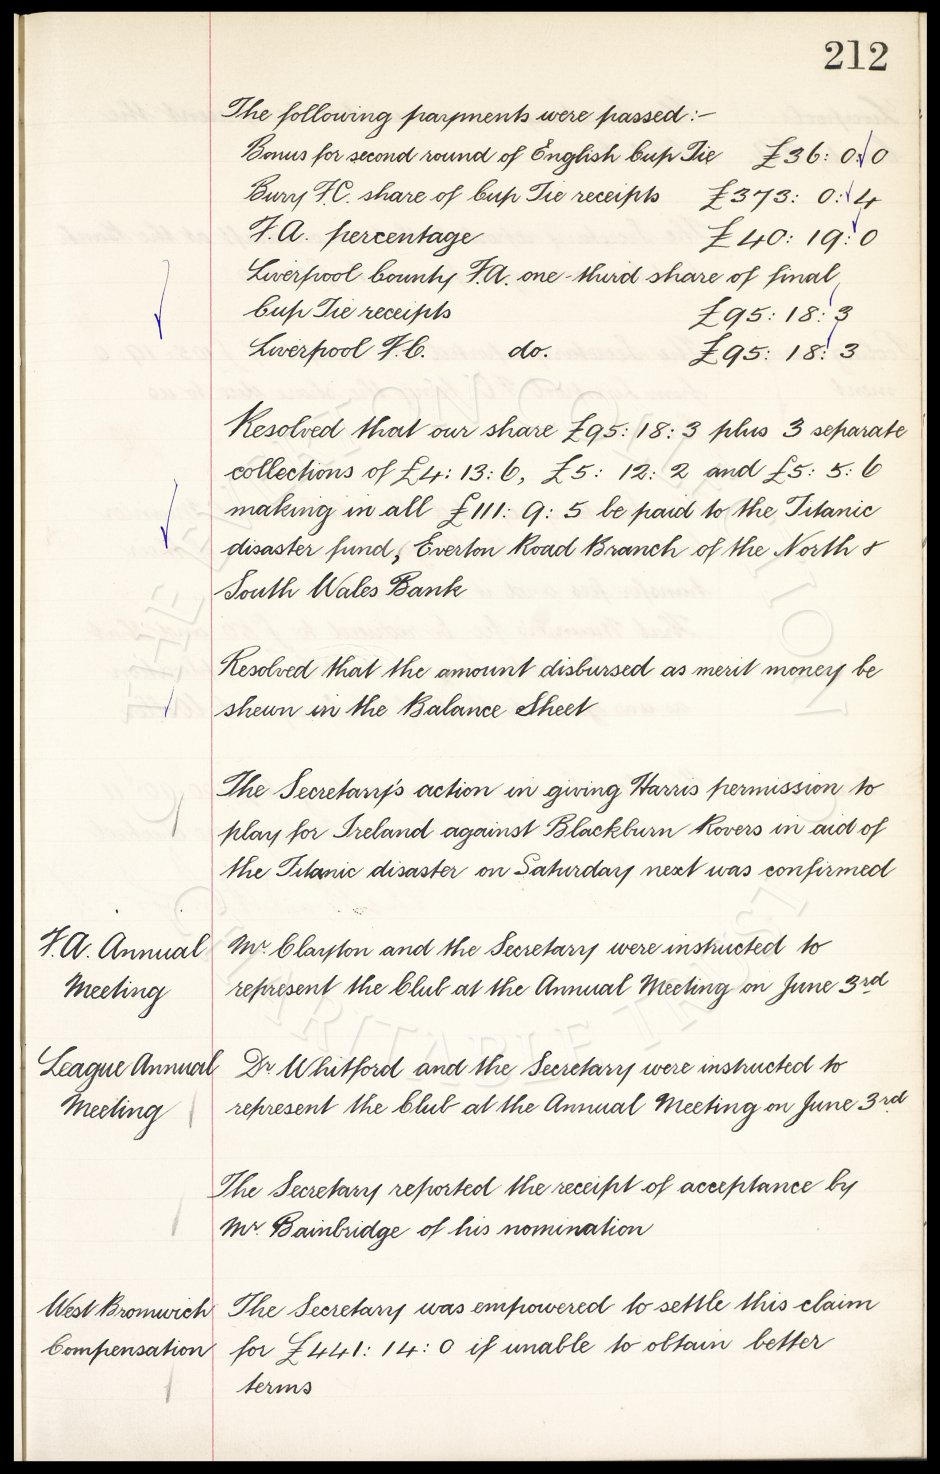 212
The following payments were passed:-
Bonus for second round of English Cup Tie £36: 0: 0
Bury F.C. share of Cup Tie receipts £373: 0: 4
F.A. percentage £40: 19: 0
Liverpool County F.A. one-third share of final
Cup Tie receipts £95: 18: 3
Liverpool F.C. do. £95: 18: 3
Resolved that our share £95: 18: 3 plus 3 separate
collections of £4: 13: 6, £5: 12: 2 and £5: 5: 6
making in all £111: 9: 5 be paid to the Titanic
disaster fund, Everton Road Branch of the North &
South Wales Bank
Resolved that the amount disbursed as merit money be
shewn in the Balance Sheet
The Secretary's action in giving Harris permission to
play for Ireland against Blackburn Rovers in aid of
the Titanic disaster on Saturday next was confirmed
F.A. Annual Mr. Clayton and the Secretary were instructed to
Meeting represent the Club at the Annual Meeting on June 3rd
League Annual Dr. Whitford and the Secretary were instructed to
Meeting represent the Club at the Annual Meeting on June 3rd
The Secretary reported the receipt of acceptance by
Mr. Bainbridge of his nomination
West Bromwich The Secretary was empowered to settle this claim
Compensation for £441: 14: 0 if unable to obtain better
terms
THE EVERTON COLLECTION
CHARITABLE TRUST